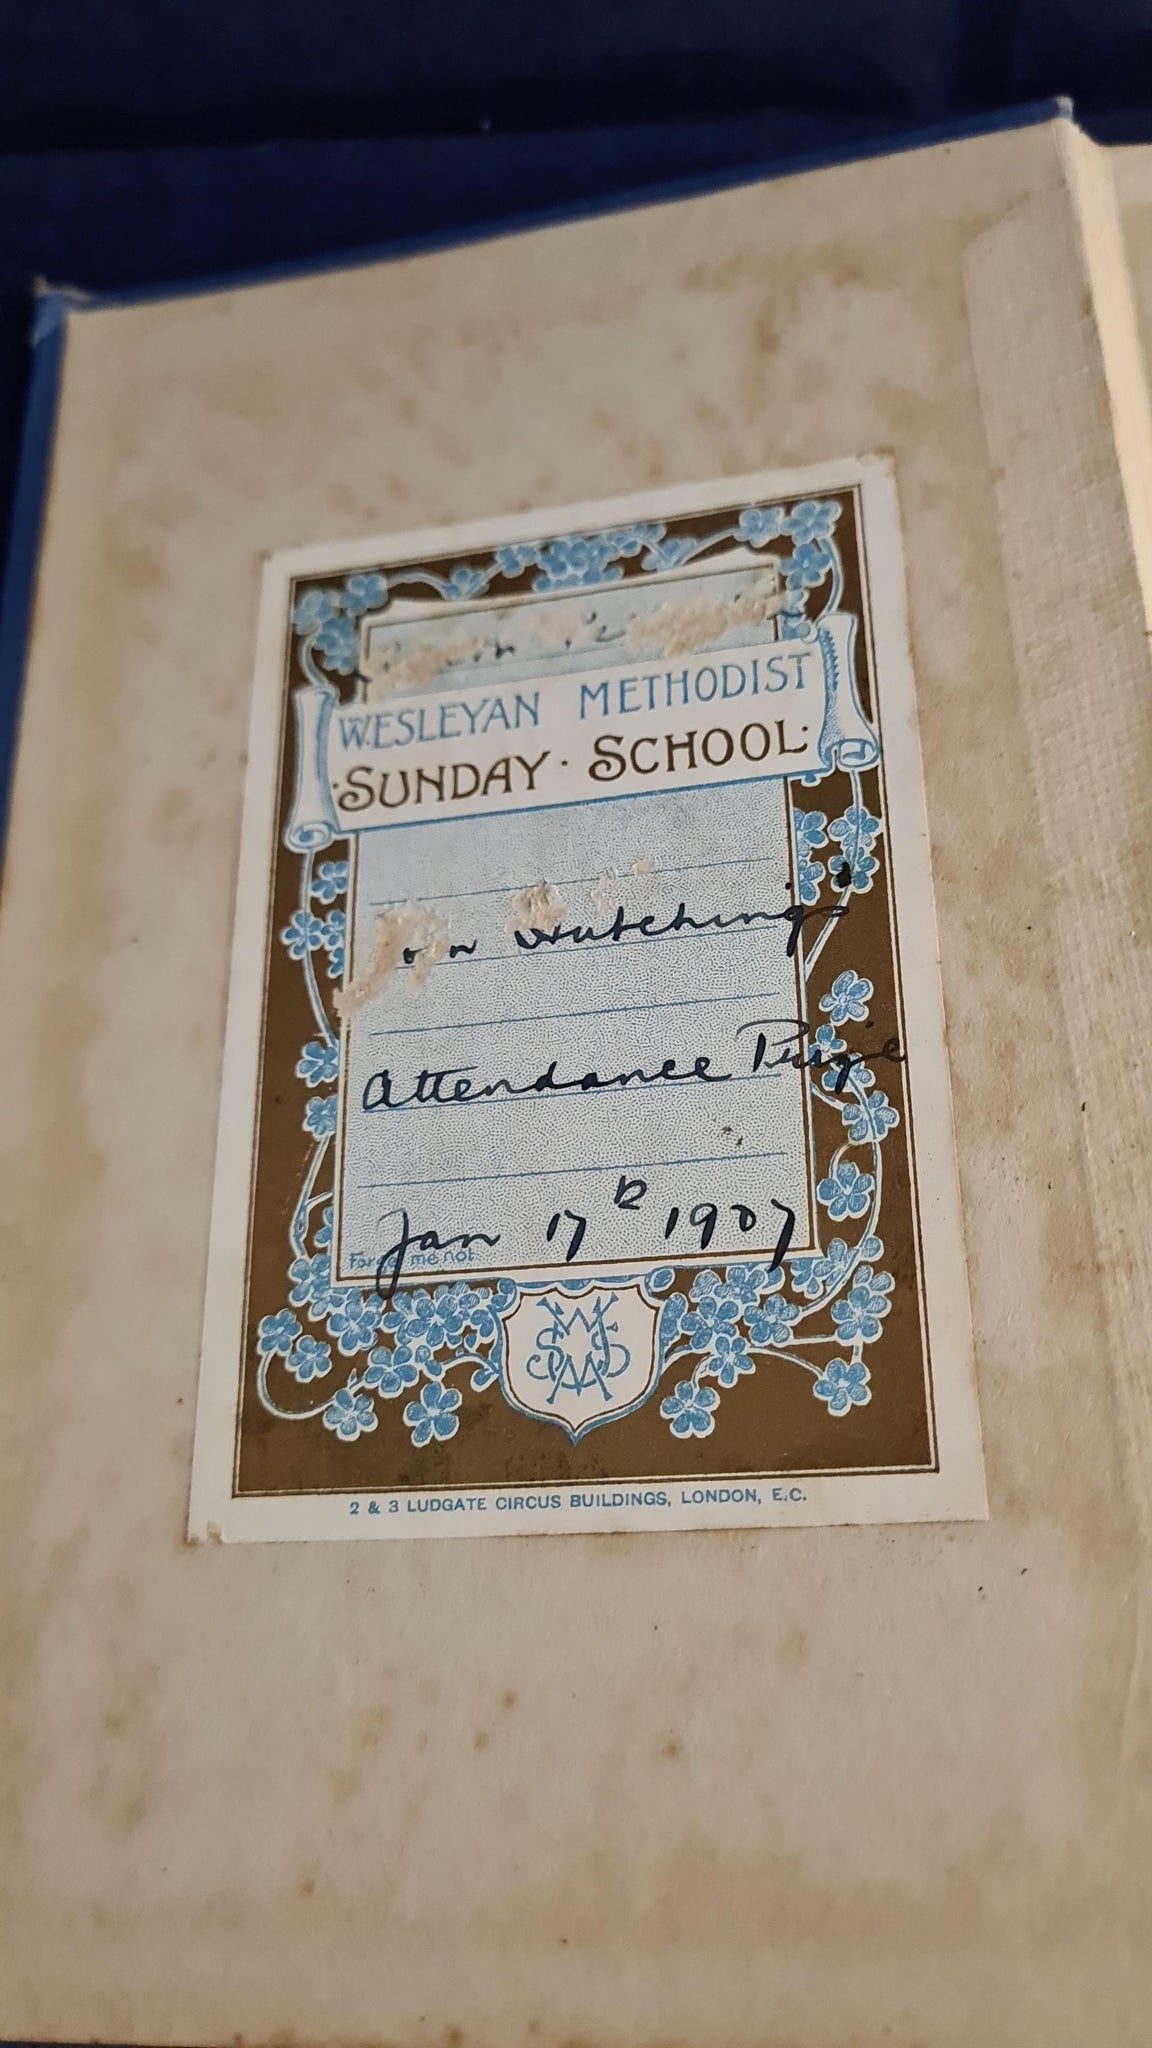 WESLEYAN METHODIST
·SUNDAY · SCHOOL·
Hutchings
Attendance Prize
Jan 17th 1907
me not
2 & 3 LUDGATE CIRCUS BUILDINGS, LONDON, E.C.